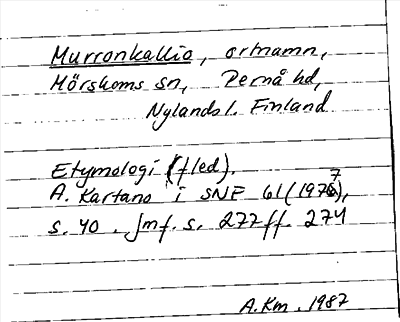 Murronkallio, ortnamn,
Mörskoms sn, Pernå hd,
Nylands l. Finland
Etymologi (fled).
A. Kartano i SNF 61 (1977),
s. 40. Jmf. s. 277 ff. 274
A. Km. 1987